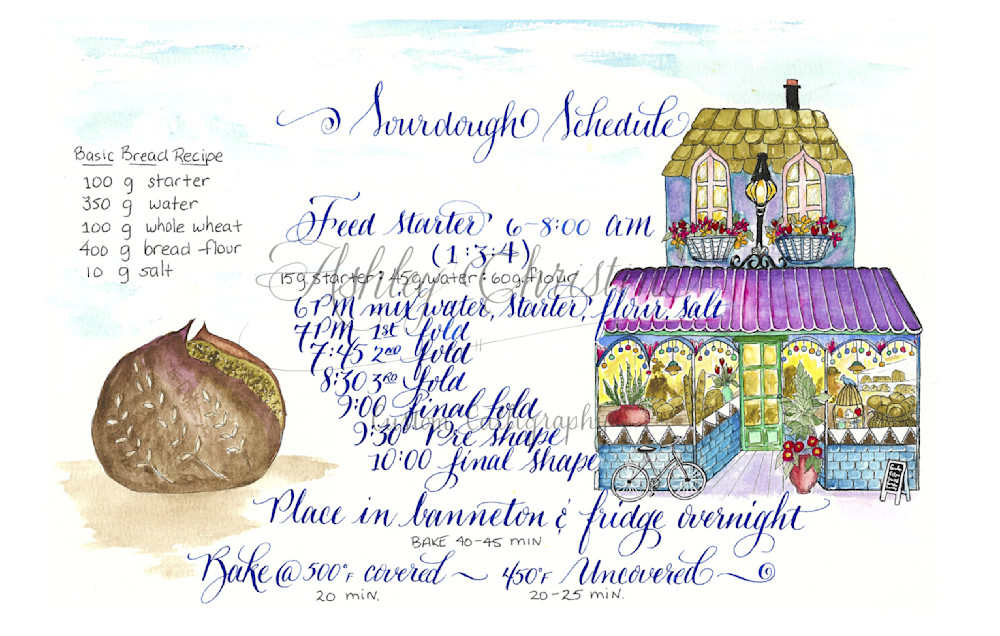 Sourdough Schedule
Basic Bread Recipe
100 g starter
350 g water
100 g whole wheat
400 g bread flour
10 g salt
Feed starter 6-8:00 am
(1:3:4)
15g starter: 45g water: 60g flour
6PM mix water, starter, flour, salt
7PM 1st fold
7:45 2nd fold
8:30 3rd fold
9:00 final fold
9:30 Pre shape
10:00 final shape
Place in banneton & fridge overnight
BAKE 40-45 MIN
Bake @ 500°F covered ~ 450°F Uncovered
20 MIN. 20-25 MIN.
Ashley Christine
Custom Calligraphy